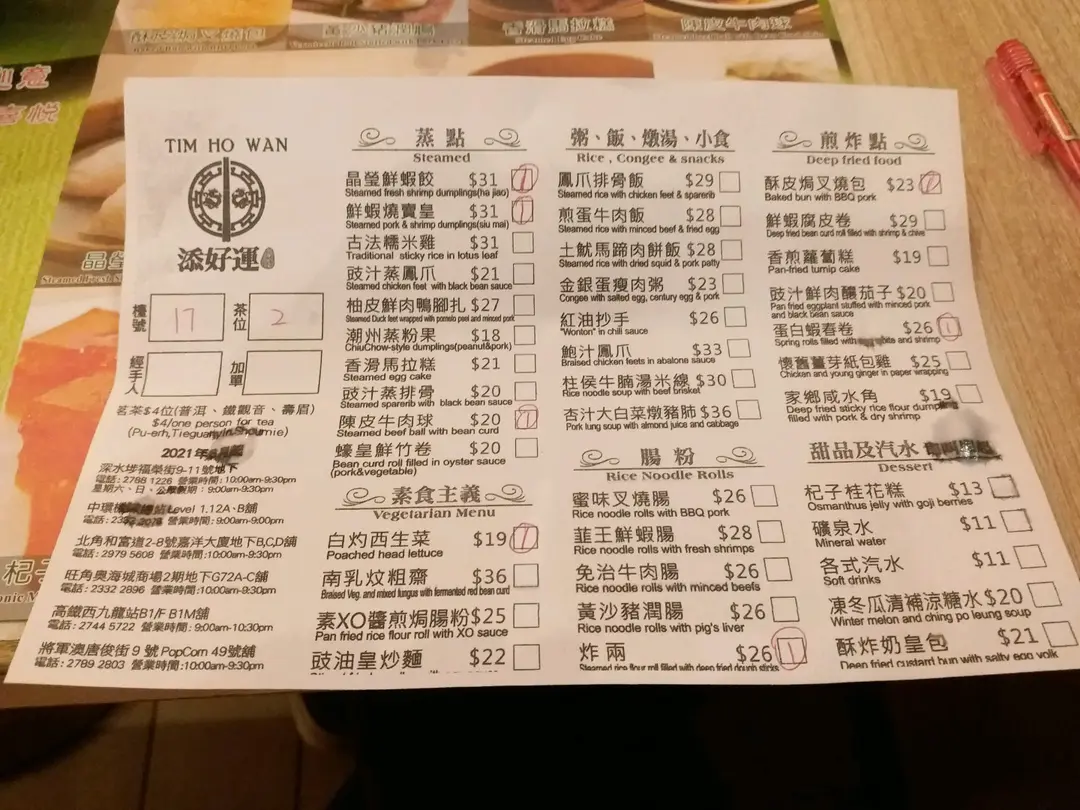 香滑馬拉糕
Steamed Egg Cake
陳皮牛肉球
TIM HO WAN
添好運
檯號 17
茶位 2
經手人
加單
茗茶$4位(普洱、鐵觀音、壽眉)
$4/one person for tea
(Pu-erh,Tieguanyin,Shoumie)
2021年
深水埗福榮街9-11號地下
電話 : 2788 1226 營業時間 : 10:00am-9:30pm
星期六、日、公眾假期 : 9:00am-9:30pm
Level 1,12A、B舖
營業時間 : 9:00am-9:00pm
北角和富道2-8號嘉洋大廈地下B,C,D舖
電話 : 2979 5608 營業時間 : 10:00am-9:30pm
旺角奧海城商場2期地下G72A-C舖
電話 : 2332 2896 營業時間 : 10:00am-9:30pm
高鐵西九龍站B1/F B1M舖
電話 : 2744 5722 營業時間 : 9:00am-10:30pm
將軍澳唐俊街 9 號 PopCorn 49號舖
電話 : 2789 2803 營業時間 : 10:00am-9:30pm
蒸點
Steamed
晶瑩鮮蝦餃 $31 1
Steamed fresh shrimp dumplings(ha jiao)
鮮蝦燒賣皇 $31 1
Steamed pork & shrimp dumplings(siu mai)
古法糯米雞 $31
Traditional sticky rice in lotus leaf
豉汁蒸鳳爪 $21
Steamed chicken feet with black bean sauce
柚皮鮮肉鴨腳扎 $27
Steamed Duck feet wrapped with pomelo peel and minced pork
潮州蒸粉果 $18
ChiuChow-style dumplings(peanut&pork)
香滑馬拉糕 $21
Steamed egg cake
豉汁蒸排骨 $20
Steamed sparerib with black bean sauce
陳皮牛肉球 $20 1
Steamed beef ball with bean curd
蠔皇鮮竹卷 $20
Bean curd roll filled in oyster sauce
(pork&vegetable)
素食主義
Vegetarian Menu
白灼西生菜 $19 1
Poached head lettuce
南乳炆粗齋 $36
Braised Veg. and mixed fungus with fermented red bean curd
素XO醬煎焗腸粉 $25
Pan fried rice flour roll with XO sauce
豉油皇炒麵 $22
粥、飯、燉湯、小食
Rice , Congee & snacks
鳳爪排骨飯 $29
Steamed rice with chicken feet & sparerib
煎蛋牛肉飯 $28
Steamed rice with minced beef & fried egg
土魷馬蹄肉餅飯 $28
Steamed rice with dried squid & pork patty
金銀蛋瘦肉粥 $23
Congee with salted egg, century egg & pork
紅油抄手 $26
"Wonton" in chili sauce
鮑汁鳳爪 $33
Braised chicken feets in abalone sauce
柱侯牛腩湯米線 $30
Rice noodle soup with beef brisket
杏汁大白菜燉豬肺 $36
Pork lung soup with almond juice and cabbage
腸粉
Rice Noodle Rolls
蜜味叉燒腸 $26
Rice noodle rolls with BBQ pork
韮王鮮蝦腸 $28
Rice noodle rolls with fresh shrimps
免治牛肉腸 $26
Rice noodle rolls with minced beefs
黃沙豬潤腸 $26
Rice noodle rolls with pig's liver
炸兩 $26 1
Steamed rice flour roll filled with deep fried dough sticks
煎炸點
Deep fried food
酥皮焗叉燒包 $23 1
Baked bun with BBQ pork
鮮蝦腐皮卷 $29
Deep fried bean curd roll filled with shrimp & chive
香煎蘿蔔糕 $19
Pan-fried turnip cake
豉汁鮮肉釀茄子 $20
Pan fried eggplant stuffed with minced pork
and black bean sauce
蛋白蝦春卷 $26 1
Spring rolls filled with egg white and shrimp
懷舊薑芽紙包雞 $25
Chicken and young ginger in paper wrapping
家鄉咸水角 $19
Deep fried sticky rice flour dumpling
filled with pork & dry shrimp
甜品及汽水
Dessert
杞子桂花糕 $13
Osmanthus jelly with goji berries
礦泉水 $11
Mineral water
各式汽水 $11
Soft drinks
凍冬瓜清補涼糖水 $20
Winter melon and ching po leung soup
酥炸奶皇包 $21
Deep fried custard bun with salty egg yolk